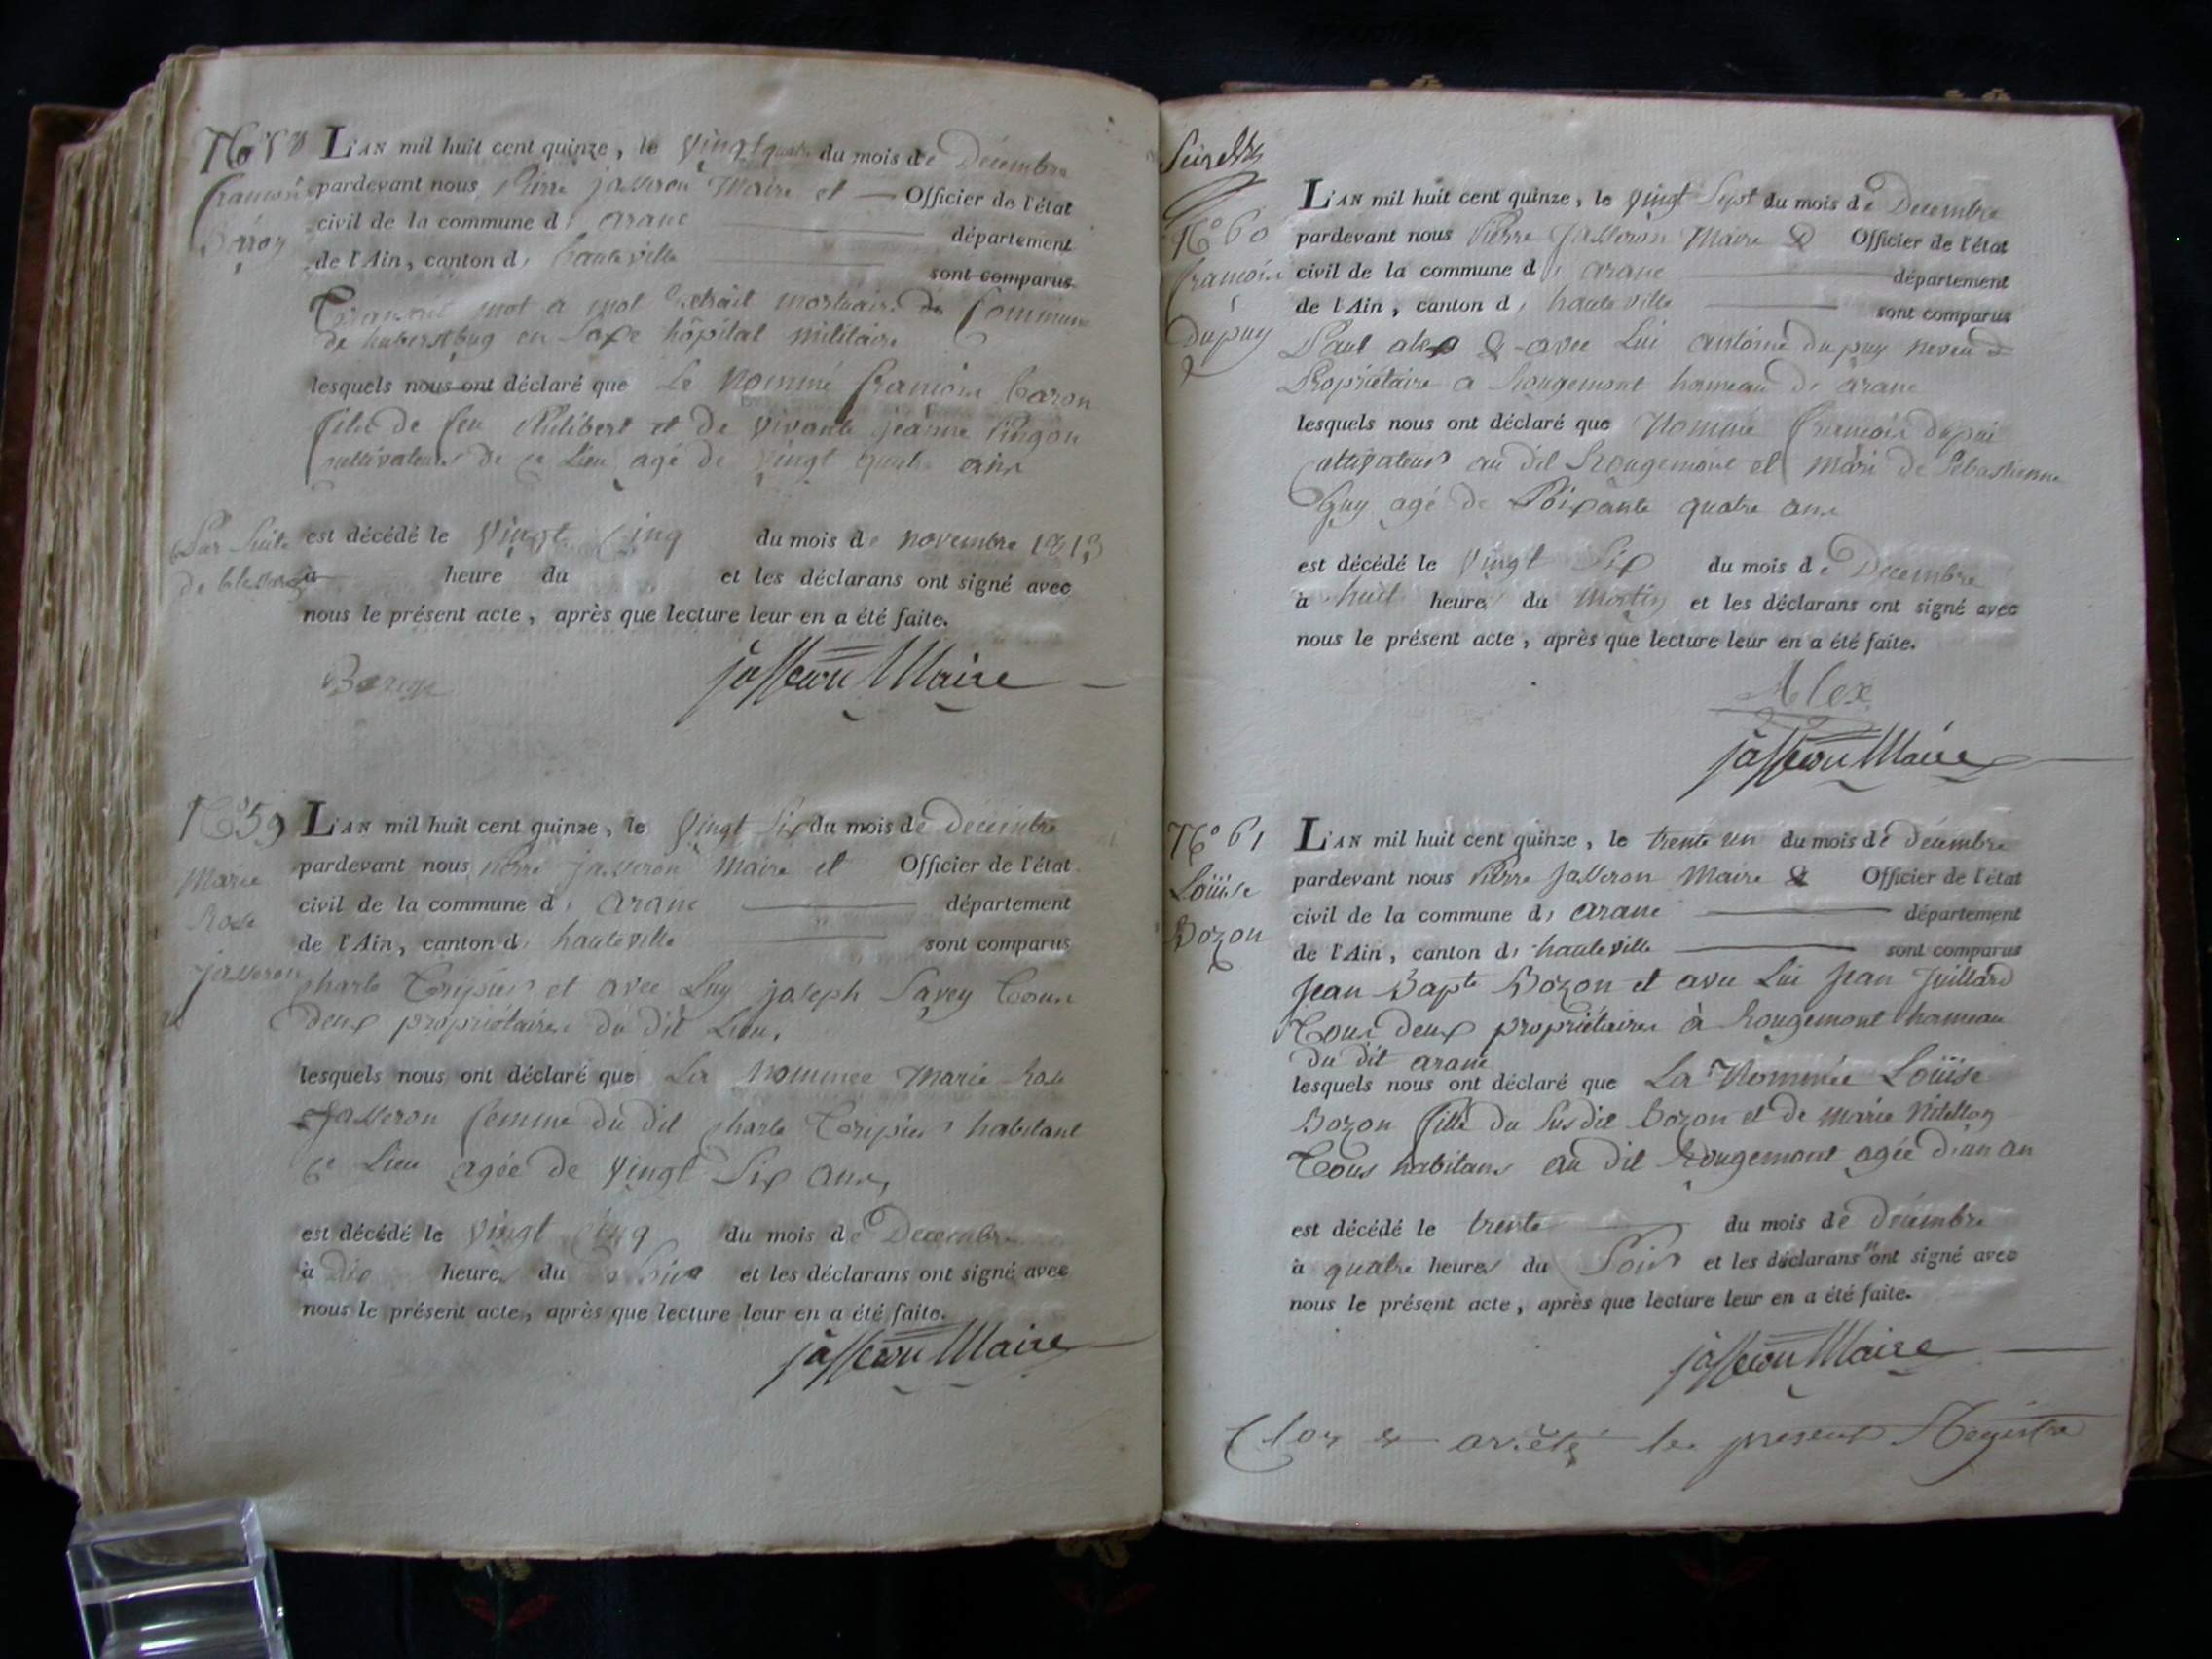 No 58 L'AN mil huit cent quinze, le vingt quatre du mois de Décembre
françois pardevant nous pierre jasseron Maire et — Officier de l'état
civil de la commune d, arane département
de l'Ain, canton d, hauteville sont comparus
mot a mot mortuaire de
de en Saxe hôpital militaire
lesquels nous ont déclaré que Le Nommé françois baron
fils de feu Philibert et de vivante jeanne
cultivateur de ce Lieu agé de vingt quatre ans
Par Suite est décédé le vingt Cinq du mois de novembre 1813
de à heure du et les déclarans ont signé avec
nous le présent acte, après que lecture leur en a été faite.
jasseron Maire
No 59 L'AN mil huit cent quinze, le vingt Six du mois de décembre
Marie pardevant nous pierre jasseron Maire et Officier de l'état
Rose civil de la commune d, arane département
de l'Ain, canton d, hauteville sont comparus
jasseron charle et avec Luy joseph Savey tous
deux propriétaires du dit Lieu,
lesquels nous ont déclaré que La Nommée Marie Rose
Jasseron femme du dit charle habitant
ce Lieu agée de vingt Six ans,
est décédé le vingt Cinq du mois de Décembre
à Dix heures du Soir et les déclarans ont signé avec
nous le présent acte, après que lecture leur en a été faite.
jasseron Maire
L'AN mil huit cent quinze, le vingt Sept du mois de Decembre
No 60 pardevant nous Pierre Jasseron Maire & Officier de l'état
françois civil de la commune d, arane département
de l'Ain, canton d, hauteville sont comparus
Dupuy Paul alex & avec Lui antoine dupuy neveu &
Propriétaire a Rougemont hameau de arane
lesquels nous ont déclaré que Nommé francois dupui
cultivateur au dit Rougemont et mari de Sébastienne
Guy agé de Soixante quatre ans
est décédé le vingt Six du mois de Decembre
à huit heures du Matin et les déclarans ont signé avec
nous le présent acte, après que lecture leur en a été faite.
Alex
jasseron Maire
No 61 L'AN mil huit cent quinze, le trente un du mois de décembre
Loüise pardevant nous Pierre Jasseron Maire & Officier de l'état
Bozon civil de la commune d, arane département
de l'Ain, canton d, hauteville sont comparus
Jean Bapte Bozon et avec Lui Jean Juillard
Tous deux propriétaires à Rougemont hameau
du dit arane
lesquels nous ont déclaré que La Nommée Loüise
Bozon fille du Susdit Bozon et de marie
Tous habitans au dit Rougemont agée d'un an
est décédé le trente du mois de décembre
à quatre heures du Soir et les déclarans ont signé avec
nous le présent acte, après que lecture leur en a été faite.
jasseron Maire
Clos & arrêté le présent Registre